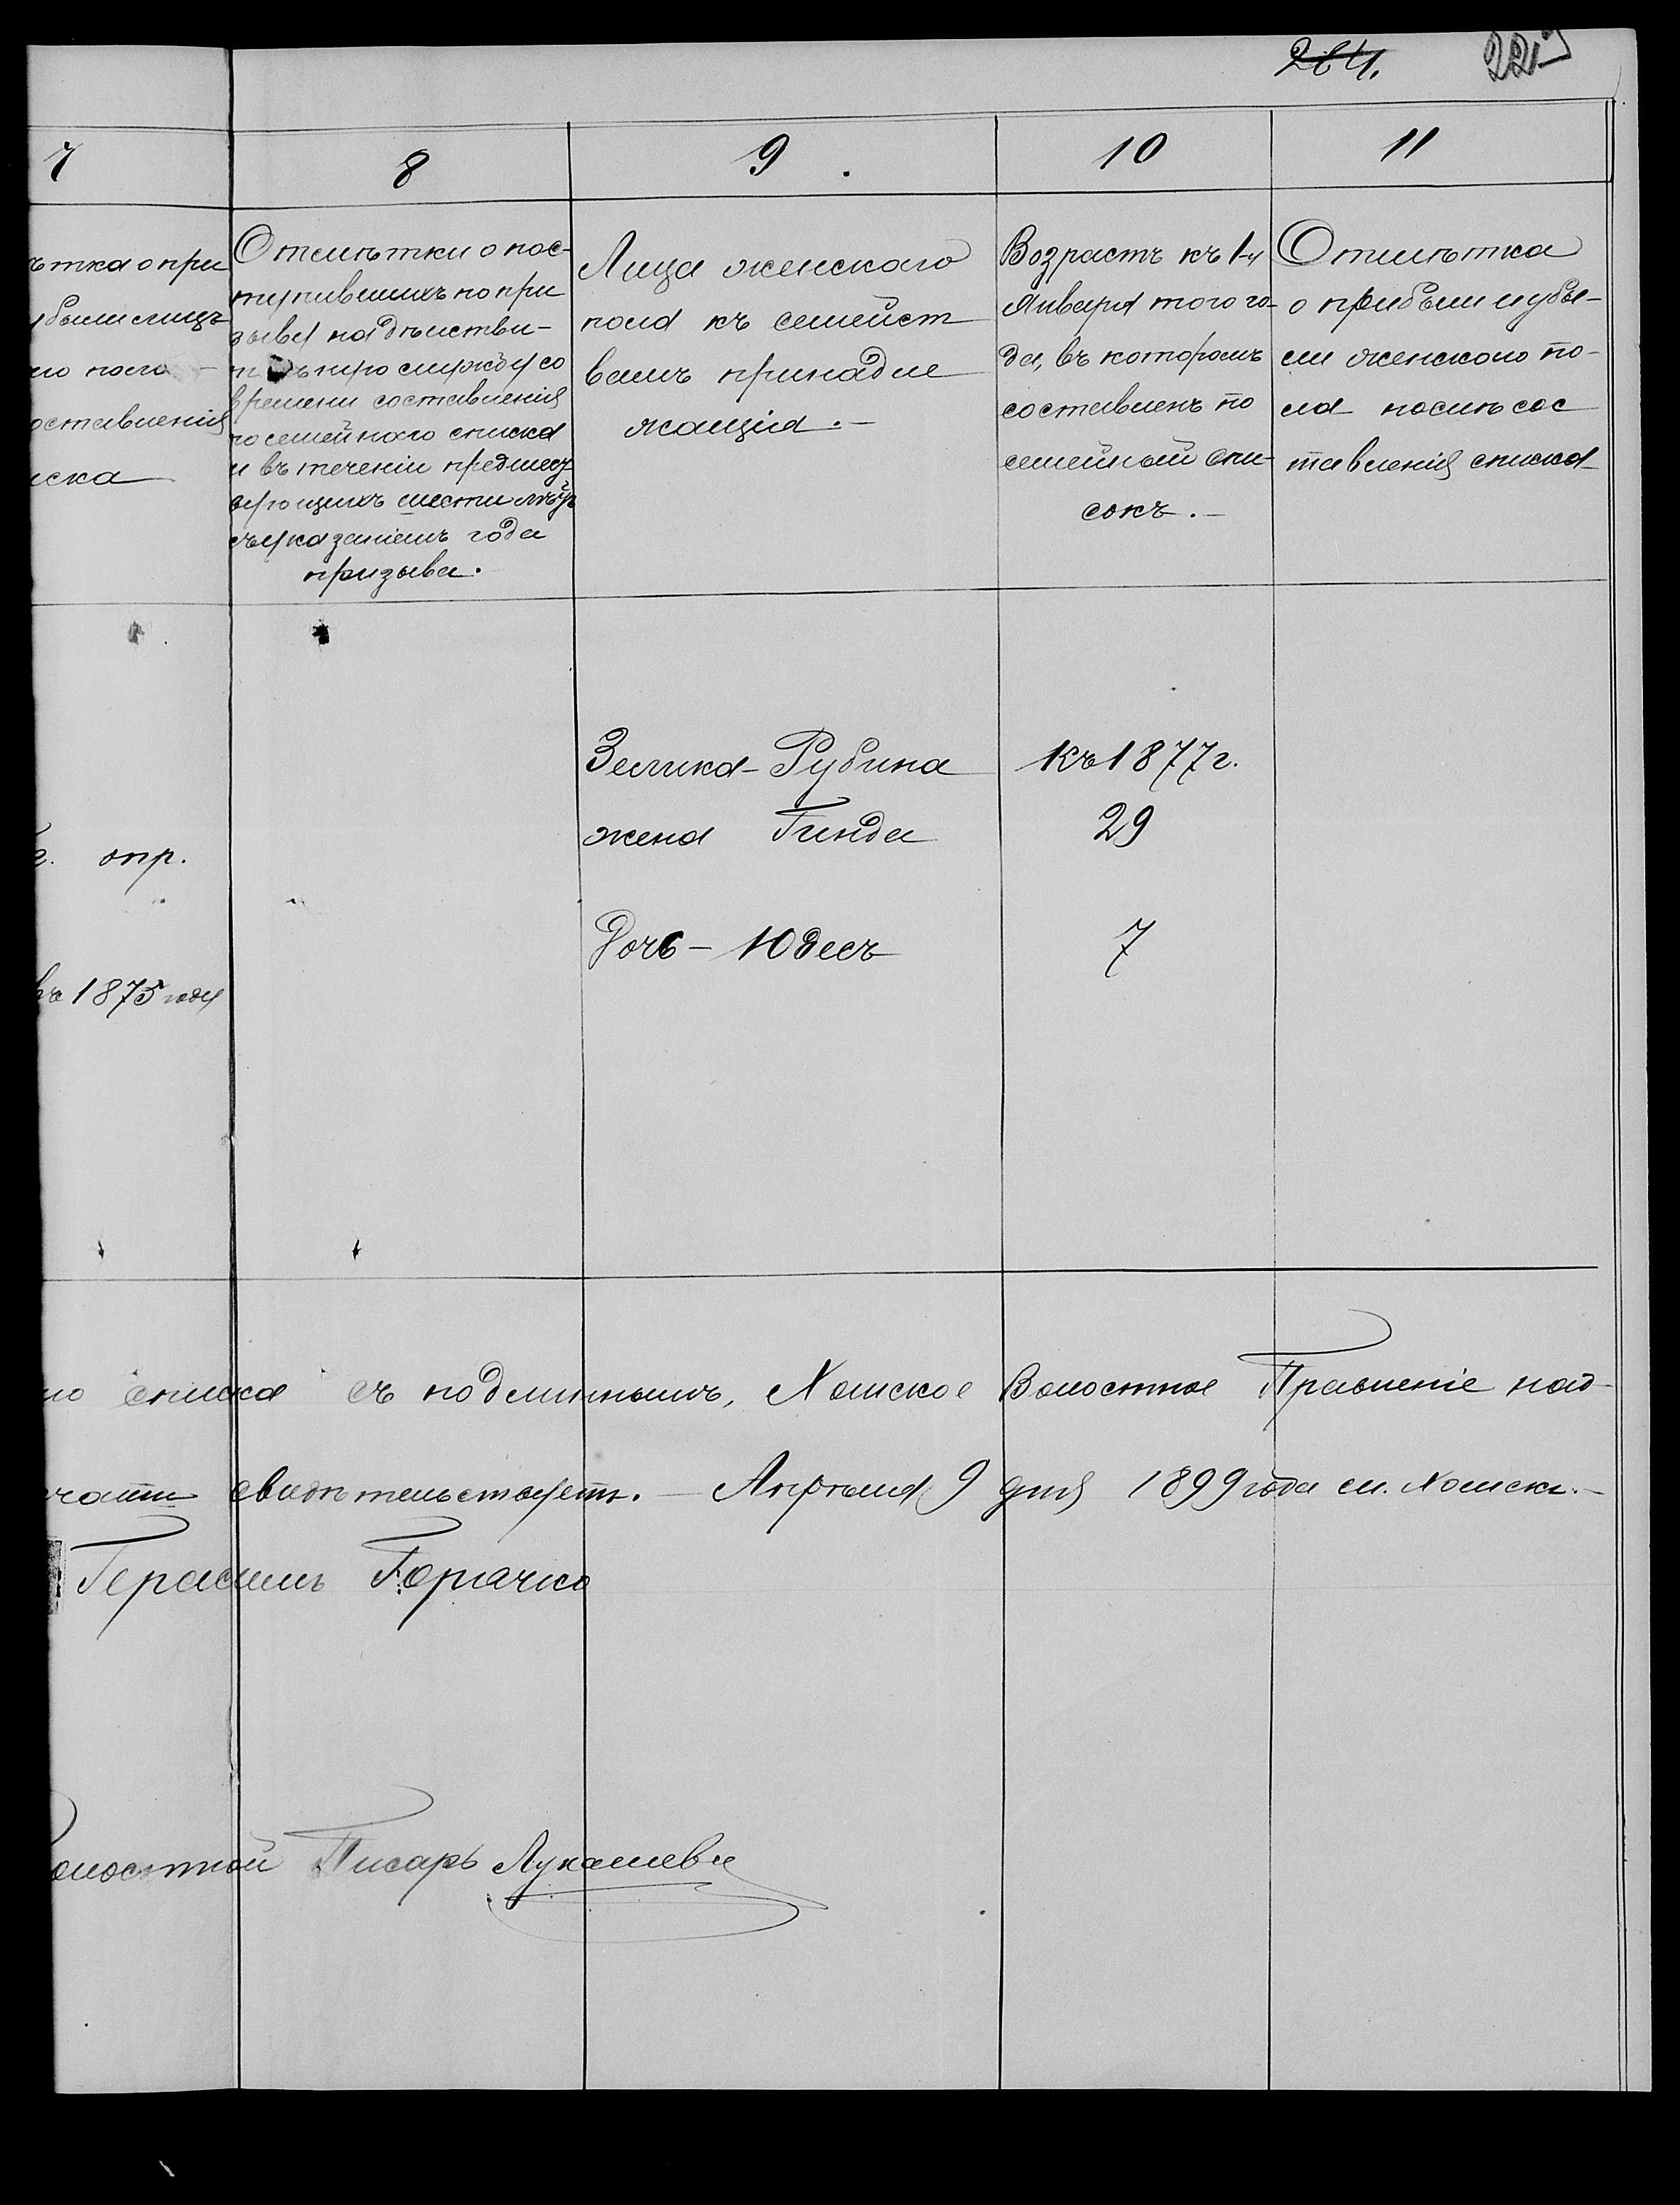 284. 221
7 8 9. 10 11
ѣтка о при
были лицъ
го пола
оставленія
иска
Отмѣтки о пос-
тупившихъ по при
зыву на дѣистви-
службу со
времени составленія
посемейнаго списка
и въ теченіи предшест
вующихъ шести лѣтъ
съ указаніемъ года
призыва.
Лица женскаго
пола къ семейст
вамъ принадле
жащія.-
Возрастъ къ 1-у
Января того го-
да, въ которомъ
составленъ по
семейный спи-
сокъ.-
Отмѣтка
о прибыли и убы-
ли женскаго по-
ла послѣ сос
тавленія списка
Зелика-Рубина къ 1877 г.
жена Гинда 29
г. опр.
Дочь - Юдесъ 7
въ 1875 году
го списка съ подлиннымъ, Хомское Волостное Правленіе над-
чати свидѣтельствуетъ. - Апрѣля 9 дня 1899 года м. Хомскъ.-
Герасимъ Горачко
олостной Писарь Лукашевъ